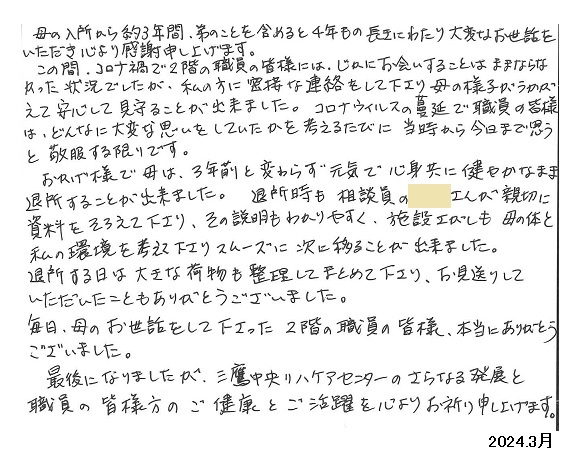 母の入所から約3年間、弟のことを含めると4年もの長きにわたり大変なお世話を
いただき心より感謝申し上げます。
この間、コロナ禍で2階の職員の皆様には、じかにお会いすることはままならな
かった状況でしたが、私の方に密接な連絡をして下さり母の様子がうかが
えて安心して見守ることが出来ました。コロナウイルスの蔓延で職員の皆様
は、どんなに大変な思いをしていたかを考えるたびに当時から今日まで思う
と敬服する限りです。
おかげ様で母は、3年前と変わらず元気で心身共に健やかなまま
退所することが出来ました。退所時も相談員の さんが親切に
資料をそろえて下さり、その説明もわかりやすく、施設さがしも母の体と
私の環境を考えて下さりスムーズに次に移ることが出来ました。
退所する日は大きな荷物も整理してまとめて下さり、お見送りして
いただいたこともありがとうございました。
毎日、母のお世話をして下さった2階の職員の皆様、本当にありがとう
ございました。
最後になりましたが、三鷹中央リハケアセンターのさらなる発展と
職員の皆様方のご健康とご活躍を心よりお祈り申し上げます。
2024.3月